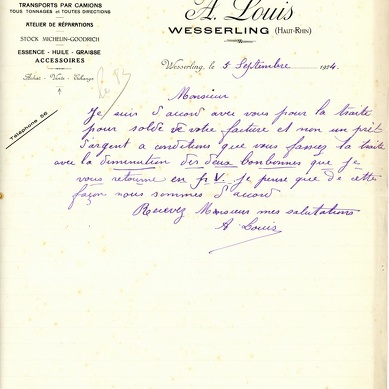 TRANSPORTS PAR CAMIONS
TOUS TONNAGES et TOUTES DIRECTIONS
ATELIER DE RÉPARATIONS
STOCK MICHELIN-GOODRICH
ESSENCE - HUILE - GRAISSE
ACCESSOIRES
Achat - Vente - Echange
Téléphone 66
A. Louis
WESSERLING (HAUT-RHIN)
Wesserling, le 5 Septembre 1924.
Monsieur
Je suis d'accord avec vous pour la traite
pour solde de votre facture et non un prêt
d'argent a conditions que vous fassiez la traite
avec la diminution des deux bonbonnes que je
vous retourne en p.V. je pense que de cette
façon nous sommes d'accord
Recevez Monsieur mes salutations
A Louis